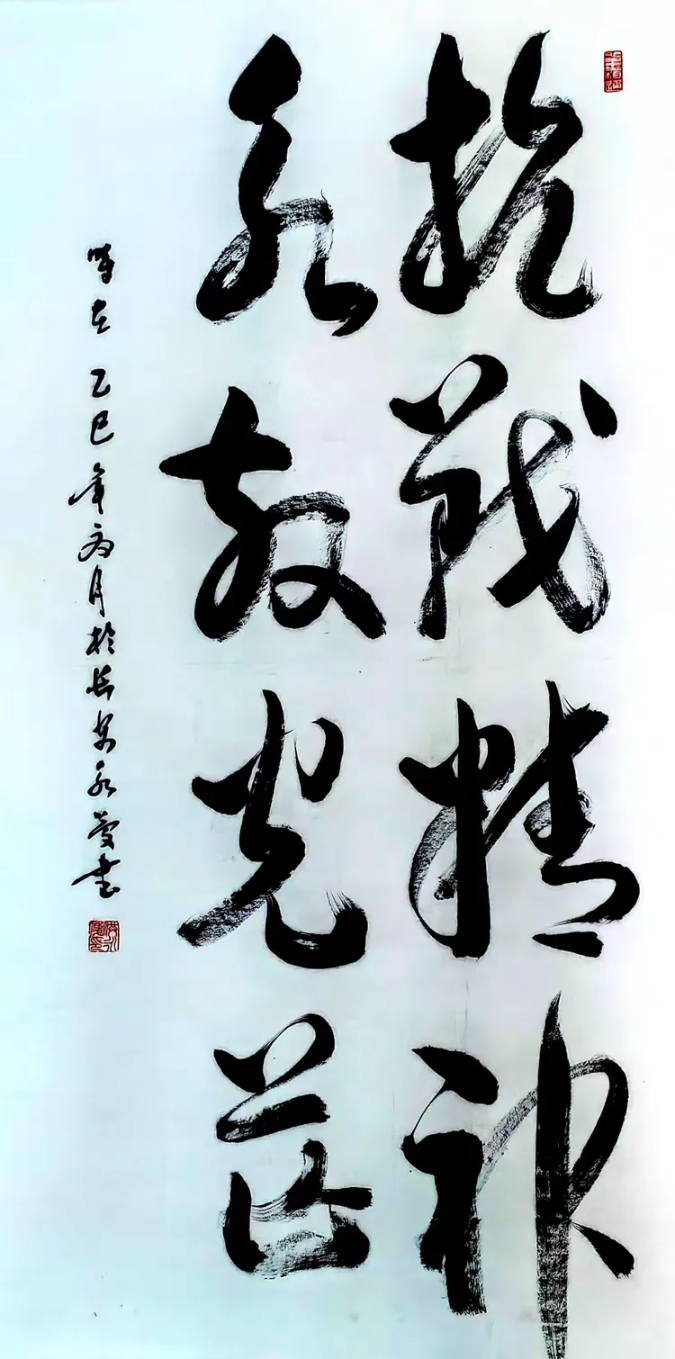 抗战精神
永放光芒
时在乙巳年七月於长安永庆书